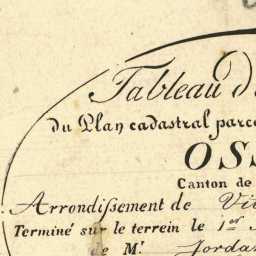 Tableau d
du Plan cadastral parce
OSS
Canton de
Arrondissement de Vi
Terminé sur le terrein le 1er
de Mr. Jorda